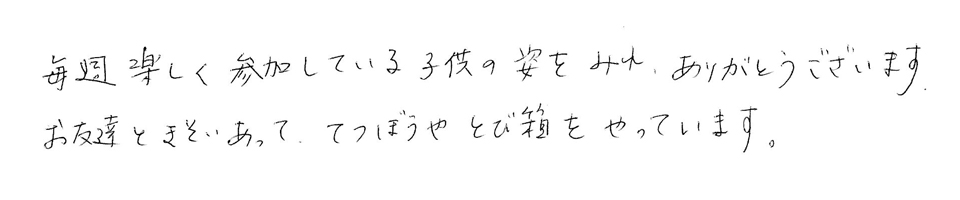 毎週 楽しく 参加している子供の姿を みれ、ありがとうございます。
お友達ときそいあって、てつぼうや とび箱を やっています。